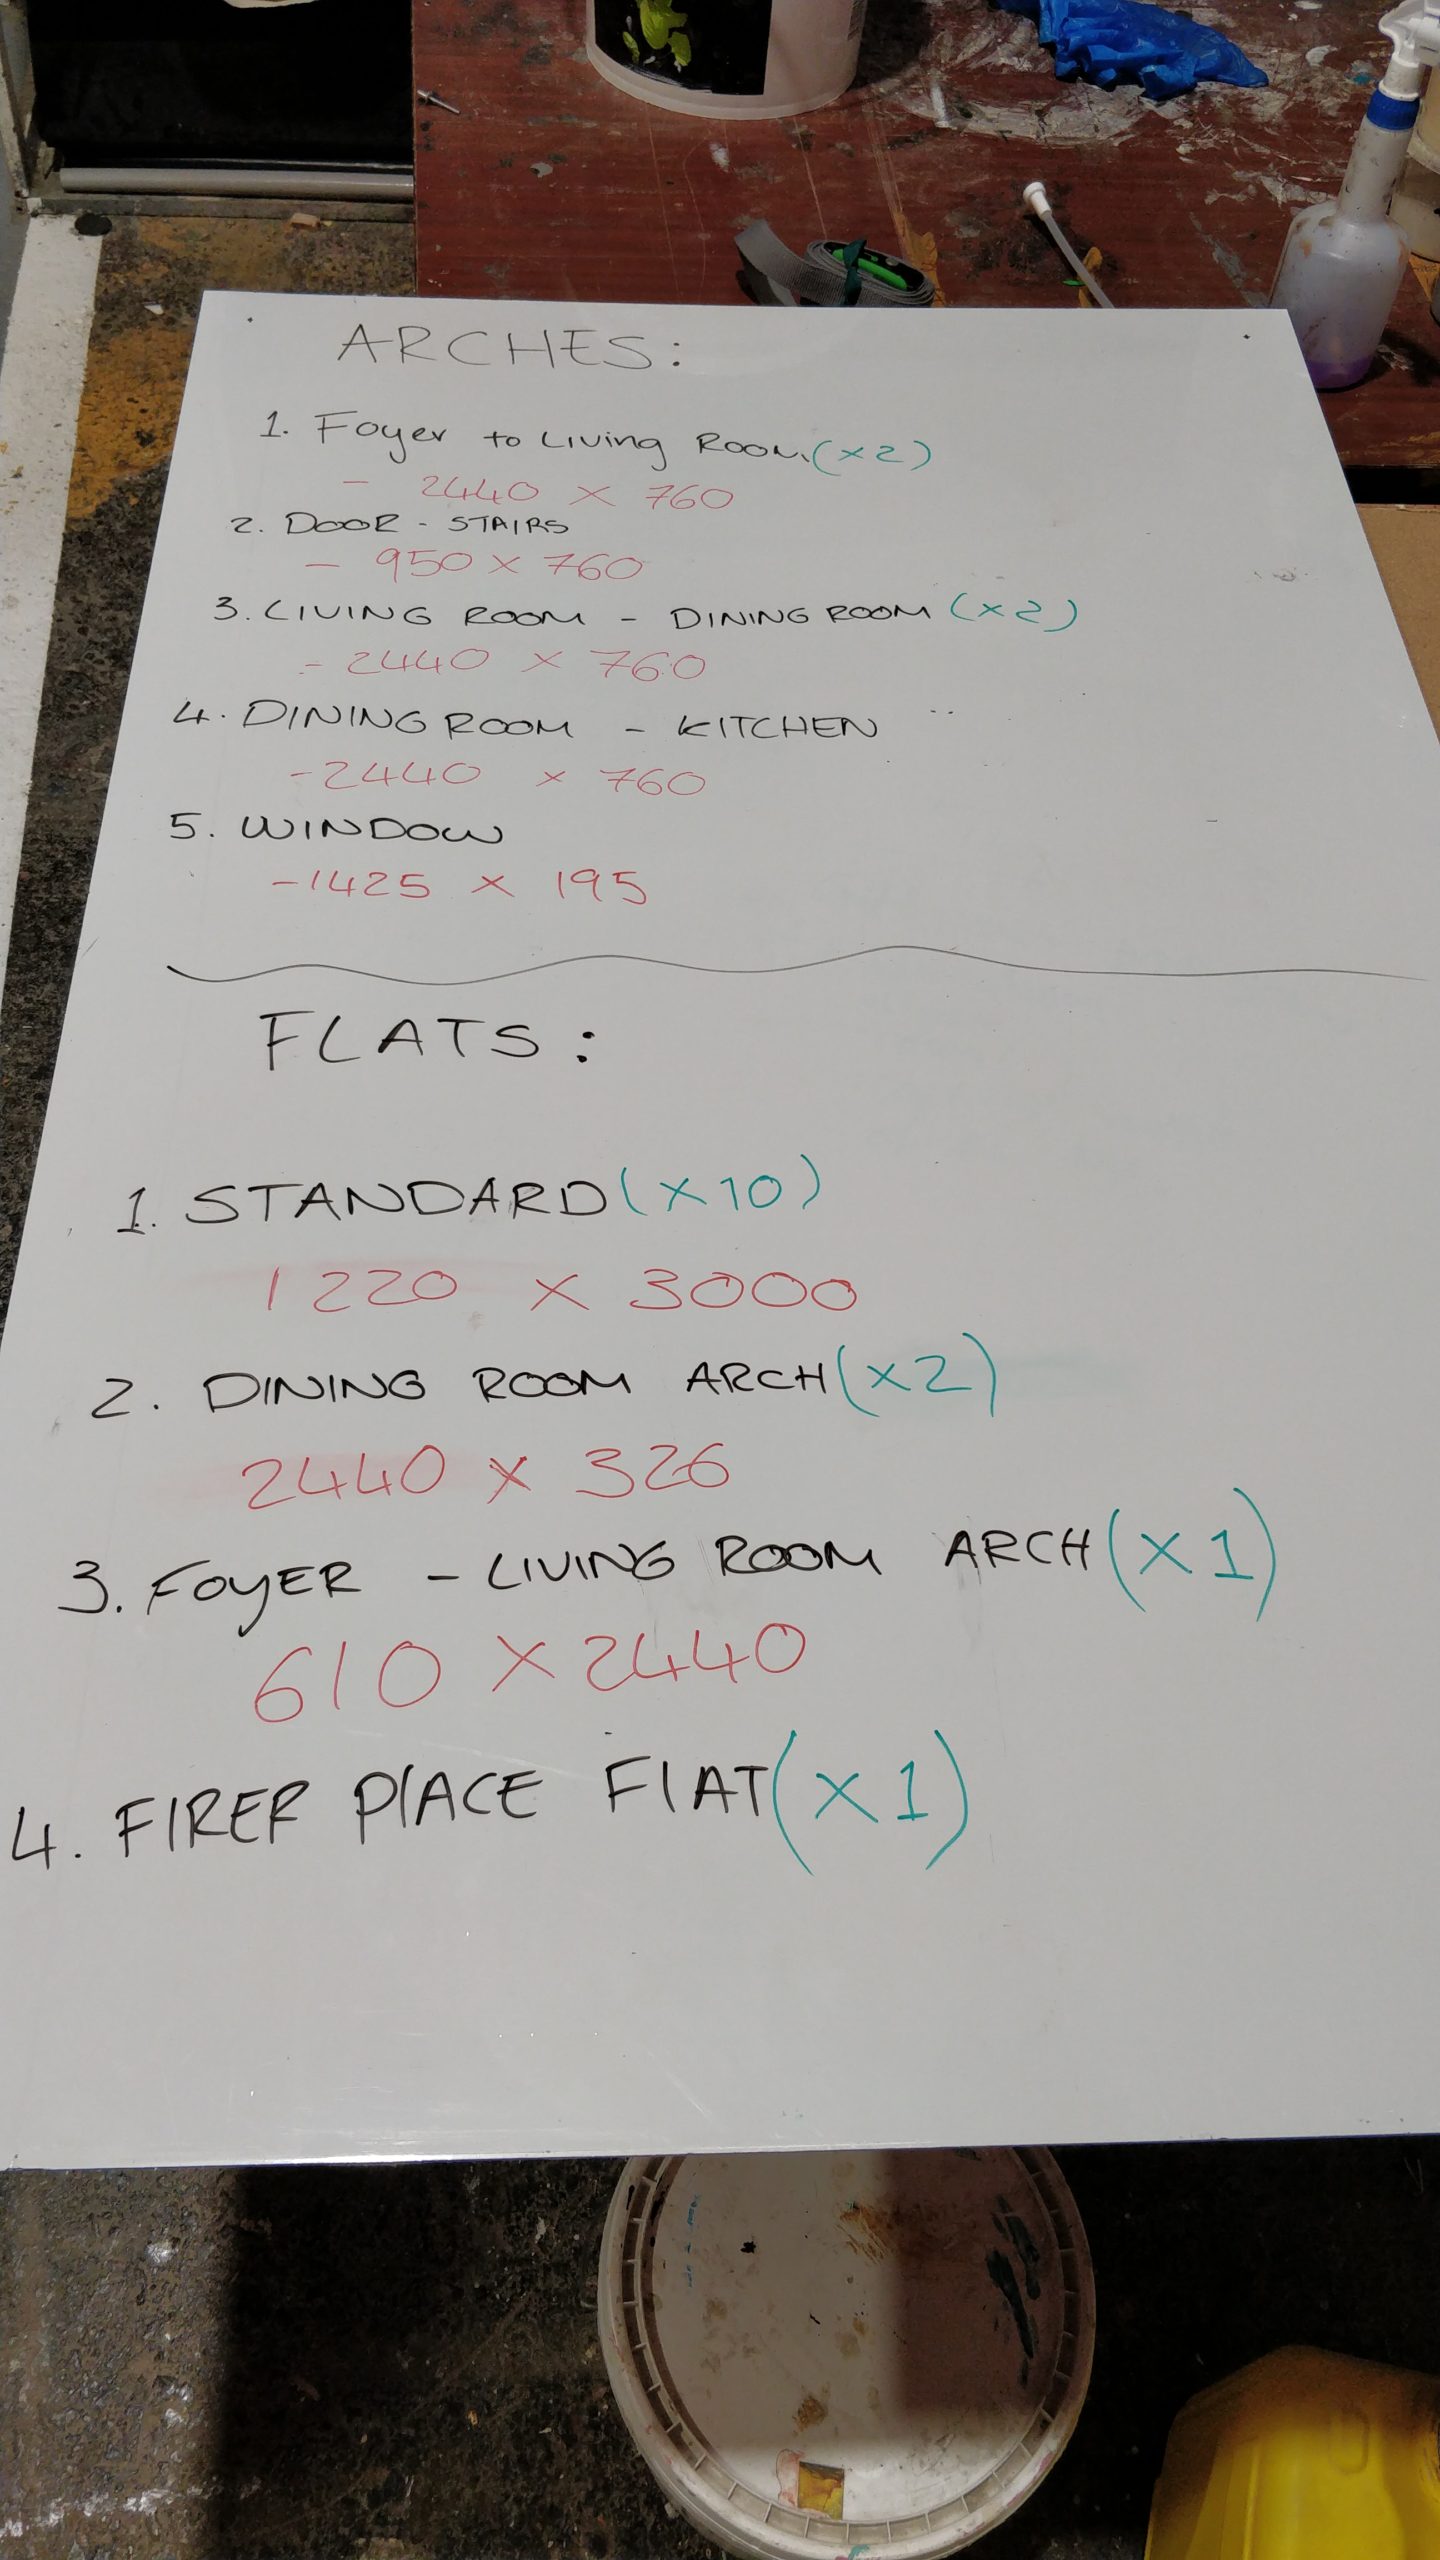 ARCHES:
1. Foyer to Living Room (x2)
- 2440 x 760
2. DOOR - STAIRS
- 950 x 760
3. LIVING ROOM - DINING ROOM (x2)
- 2440 x 760
4. DINING ROOM - KITCHEN
- 2440 x 760
5. WINDOW
- 1425 x 195
FLATS:
1. STANDARD (x10)
1220 x 3000
2. DINING ROOM ARCH (x2)
2440 x 326
3. FOYER - LIVING ROOM ARCH (x1)
610 x 2440
4. FIRER PlACE FlAT (x1)